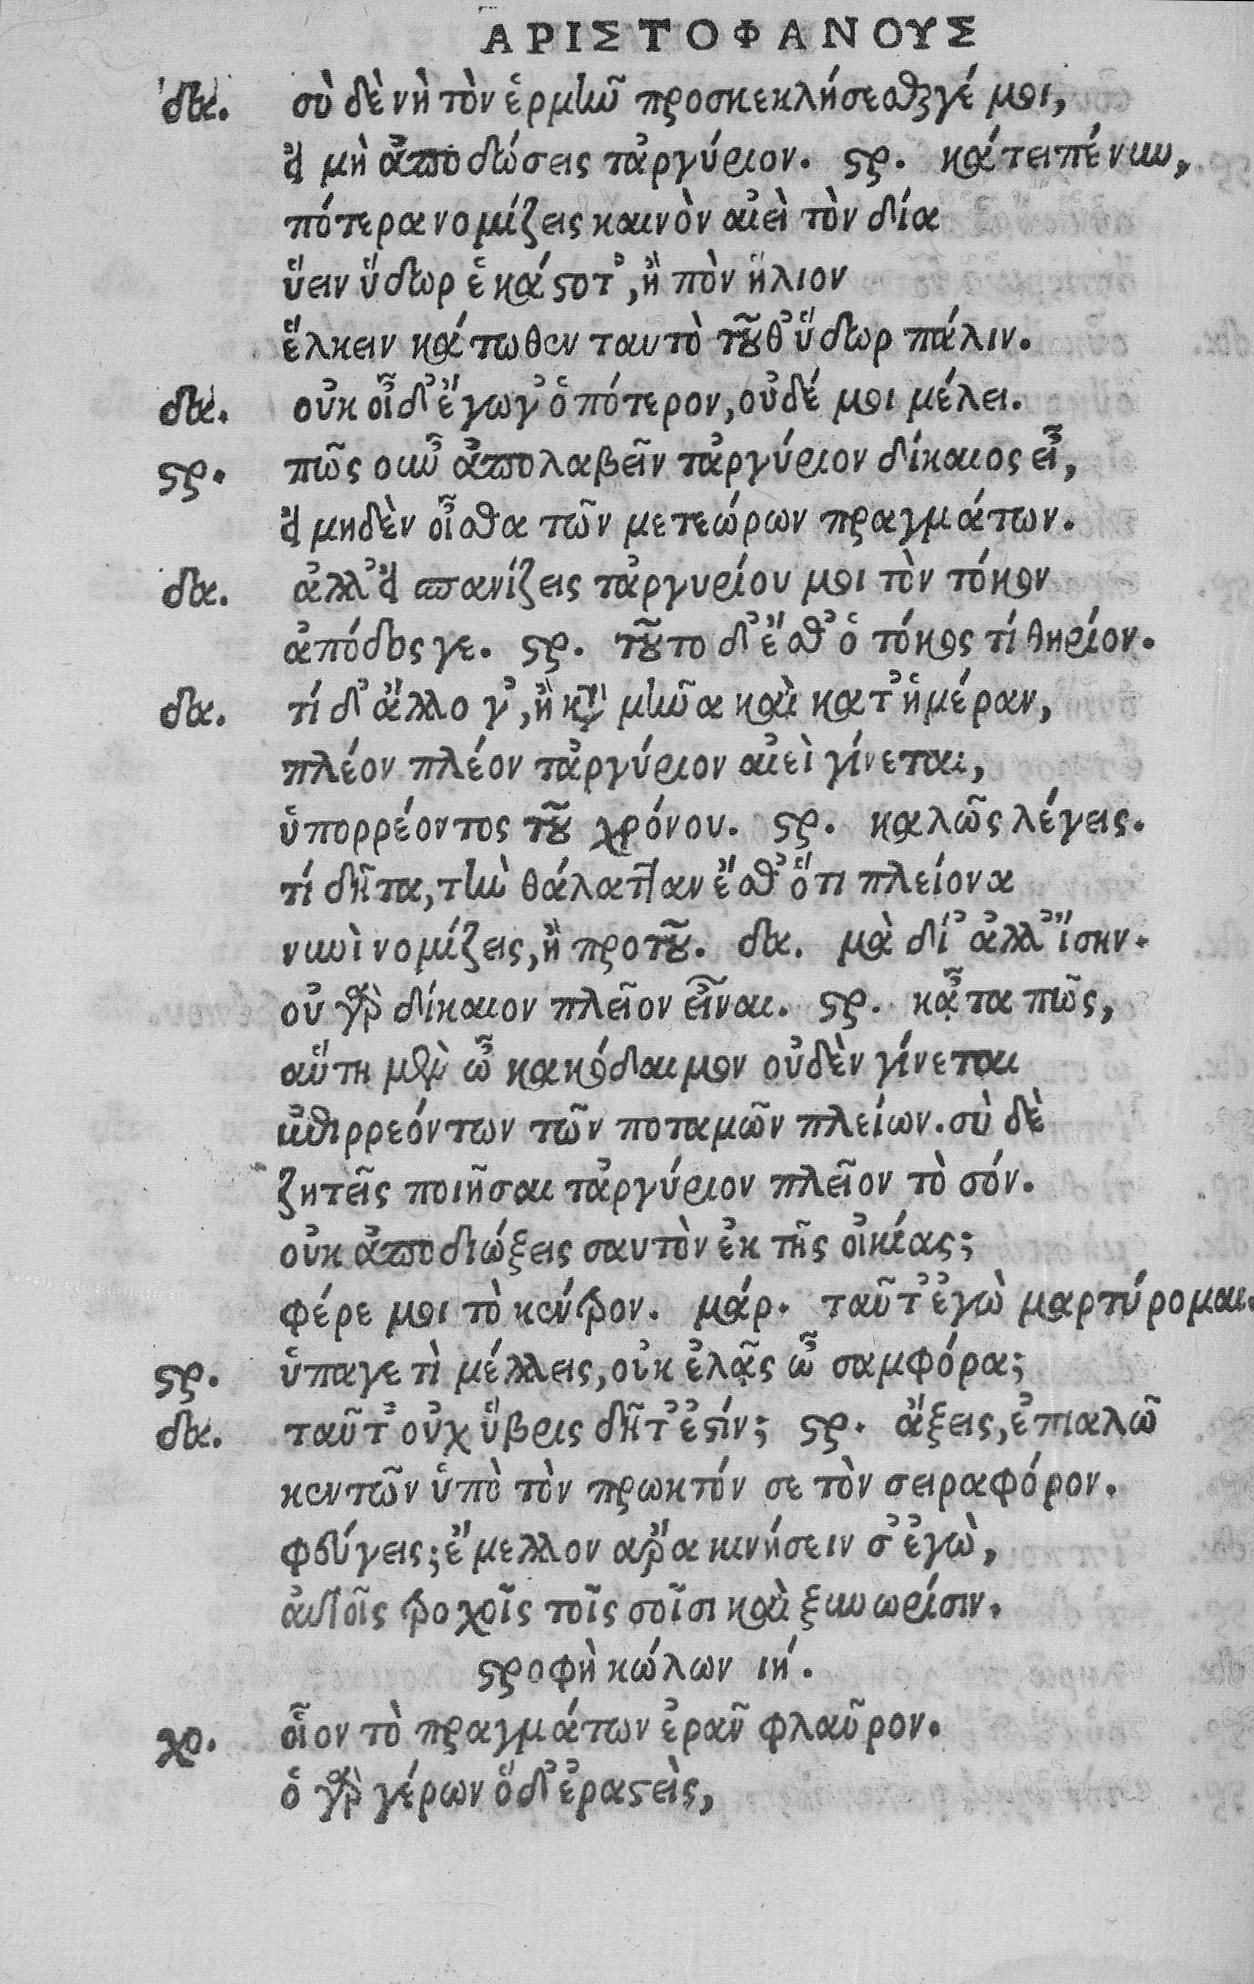 ΑΡΙΣΤΟΦΑΝΟΥΣ
δα. σὺ δὲ νὴ τὸν ἑρμῆν προσκεκλήσεσθαί γέ μοι,
εἰ μὴ ἀποδώσεις τἀργύριον. ϛρ. κάτειπέ νυν,
πότερα νομίζεις καινὸν αἰεὶ τὸν δία
ὕειν ὕδωρ ἑκάϛοτ', ἢ τὸν ἥλιον
ἕλκειν κάτωθεν ταυτὸ τοῦθ' ὕδωρ πάλιν.
δα. οὐκ οἶδ' ἔγωγ' ὁπότερον, οὐδέ μοι μέλει.
ϛρ. πῶς οὖν ἀπολαβεῖν τἀργύριον δίκαιος εἶ,
εἰ μηδὲν οἶσθα τῶν μετεώρων πραγμάτων.
δα. ἀλλ' εἰ σπανίζεις τἀργυρίου μοι τὸν τόκον
ἀπόδος γε. ϛρ. τοῦτο δ' ἔσθ' ὁ τόκος τί θηρίον.
δα. τί δ' ἄλλο γ', ἢ κατὰ μῆνα καὶ κατ' ἡμέραν,
πλέον πλέον τἀργύριον αἰεὶ γίνεται,
ὑπορρέοντος τοῦ χρόνου. ϛρ. καλῶς λέγεις.
τί δῆτα, τὴν θάλατταν ἔσθ' ὅτι πλείονα
νυνὶ νομίζεις, ἢ προτοῦ. δα. μὰ δί' ἀλλ' ἴσην.
οὐ γὰρ δίκαιον πλεῖον εἶναι. ϛρ. κᾆτα πῶς,
αὕτη μὲν ὦ κακόδαιμον οὐδὲν γίνεται
ἐπιρρεόντων τῶν ποταμῶν πλείων. σὺ δὲ
ζητεῖς ποιῆσαι τἀργύριον πλεῖον τὸ σόν.
οὐκ ἀποδιώξεις σαυτὸν ἐκ τῆς οἰκίας;
φέρε μοι τὸ κέντρον. μάρ. ταῦτ' ἐγὼ μαρτύρομαι.
ϛρ. ὕπαγε τὶ μέλλεις, οὐκ ἐλᾷς ὦ σαμφόρα;
δα. ταῦτ' οὐχ ὕβρις δῆτ' ἐϛίν; ϛρ. ἄξεις, ἐπιαλῶ
κεντῶν ὑπὸ τὸν πρωκτόν σε τὸν σειραφόρον.
φεύγεις; ἔμελλον ἄρα κινήσειν σ' ἐγὼ,
αὐτοῖς τροχοῖς τοῖς σοῖσι καὶ ξυνωρίσιν.
ϛροφὴ κώλων ιή.
χο. οἷον τὸ πραγμάτων ἐρᾷν φλαῦρον.
ὁ γὰρ γέρων ὅδ' ἐραϛεὶς,